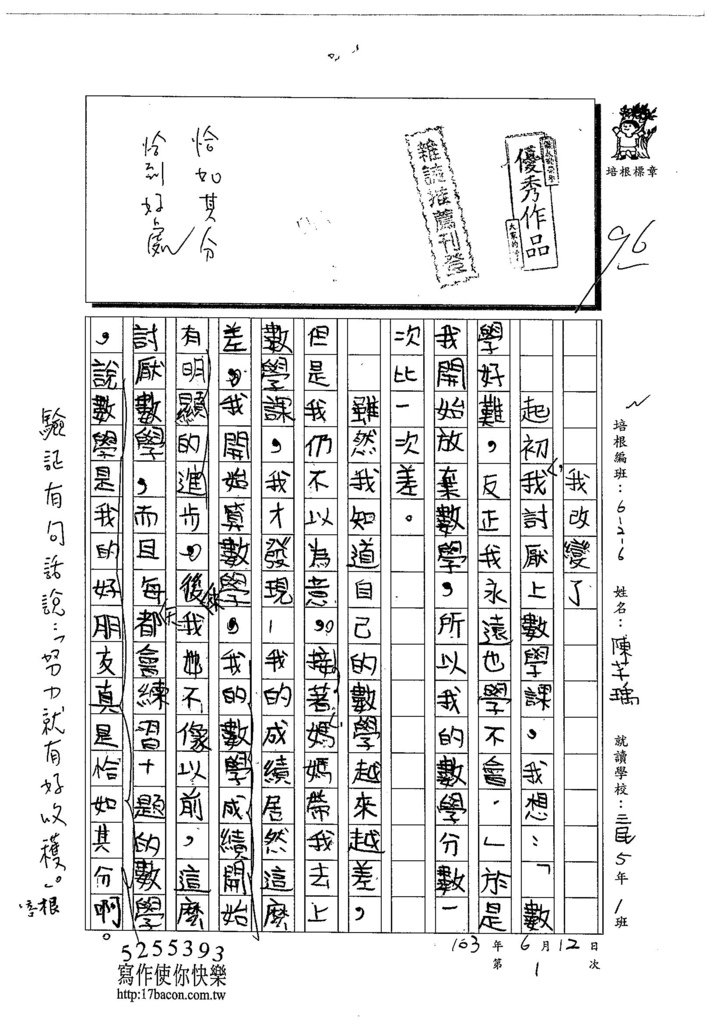 培根標章
96
優秀作品
雜誌推薦刊登
恰如其分
恰到好處
培根編班：6-2-6 姓名：陳芊瑀 就讀學校：三民5年1班
103年6月12日
第1次
我改變了
起初，我討厭上數學課。我想：「數
學好難，反正我永遠也學不會。」於是
我開始放棄數學，所以我的數學分數一
次比一次差。
雖然我知道自己的數學越來越差，
但是我仍不以為意。接著，媽媽帶我去上
數學課，我才發現，我的成績居然這麼
差。我開始算數學。我的數學成績開始
有明顯的進步。後來我也不像以前，這麼
討厭數學，而且每天都會練習十題的數學
，說數學是我的好朋友真是恰如其分啊。
驗証有句話說：「努力就有好收穫。」
培根
5255393
寫作使你快樂
http:17bacon.com.tw